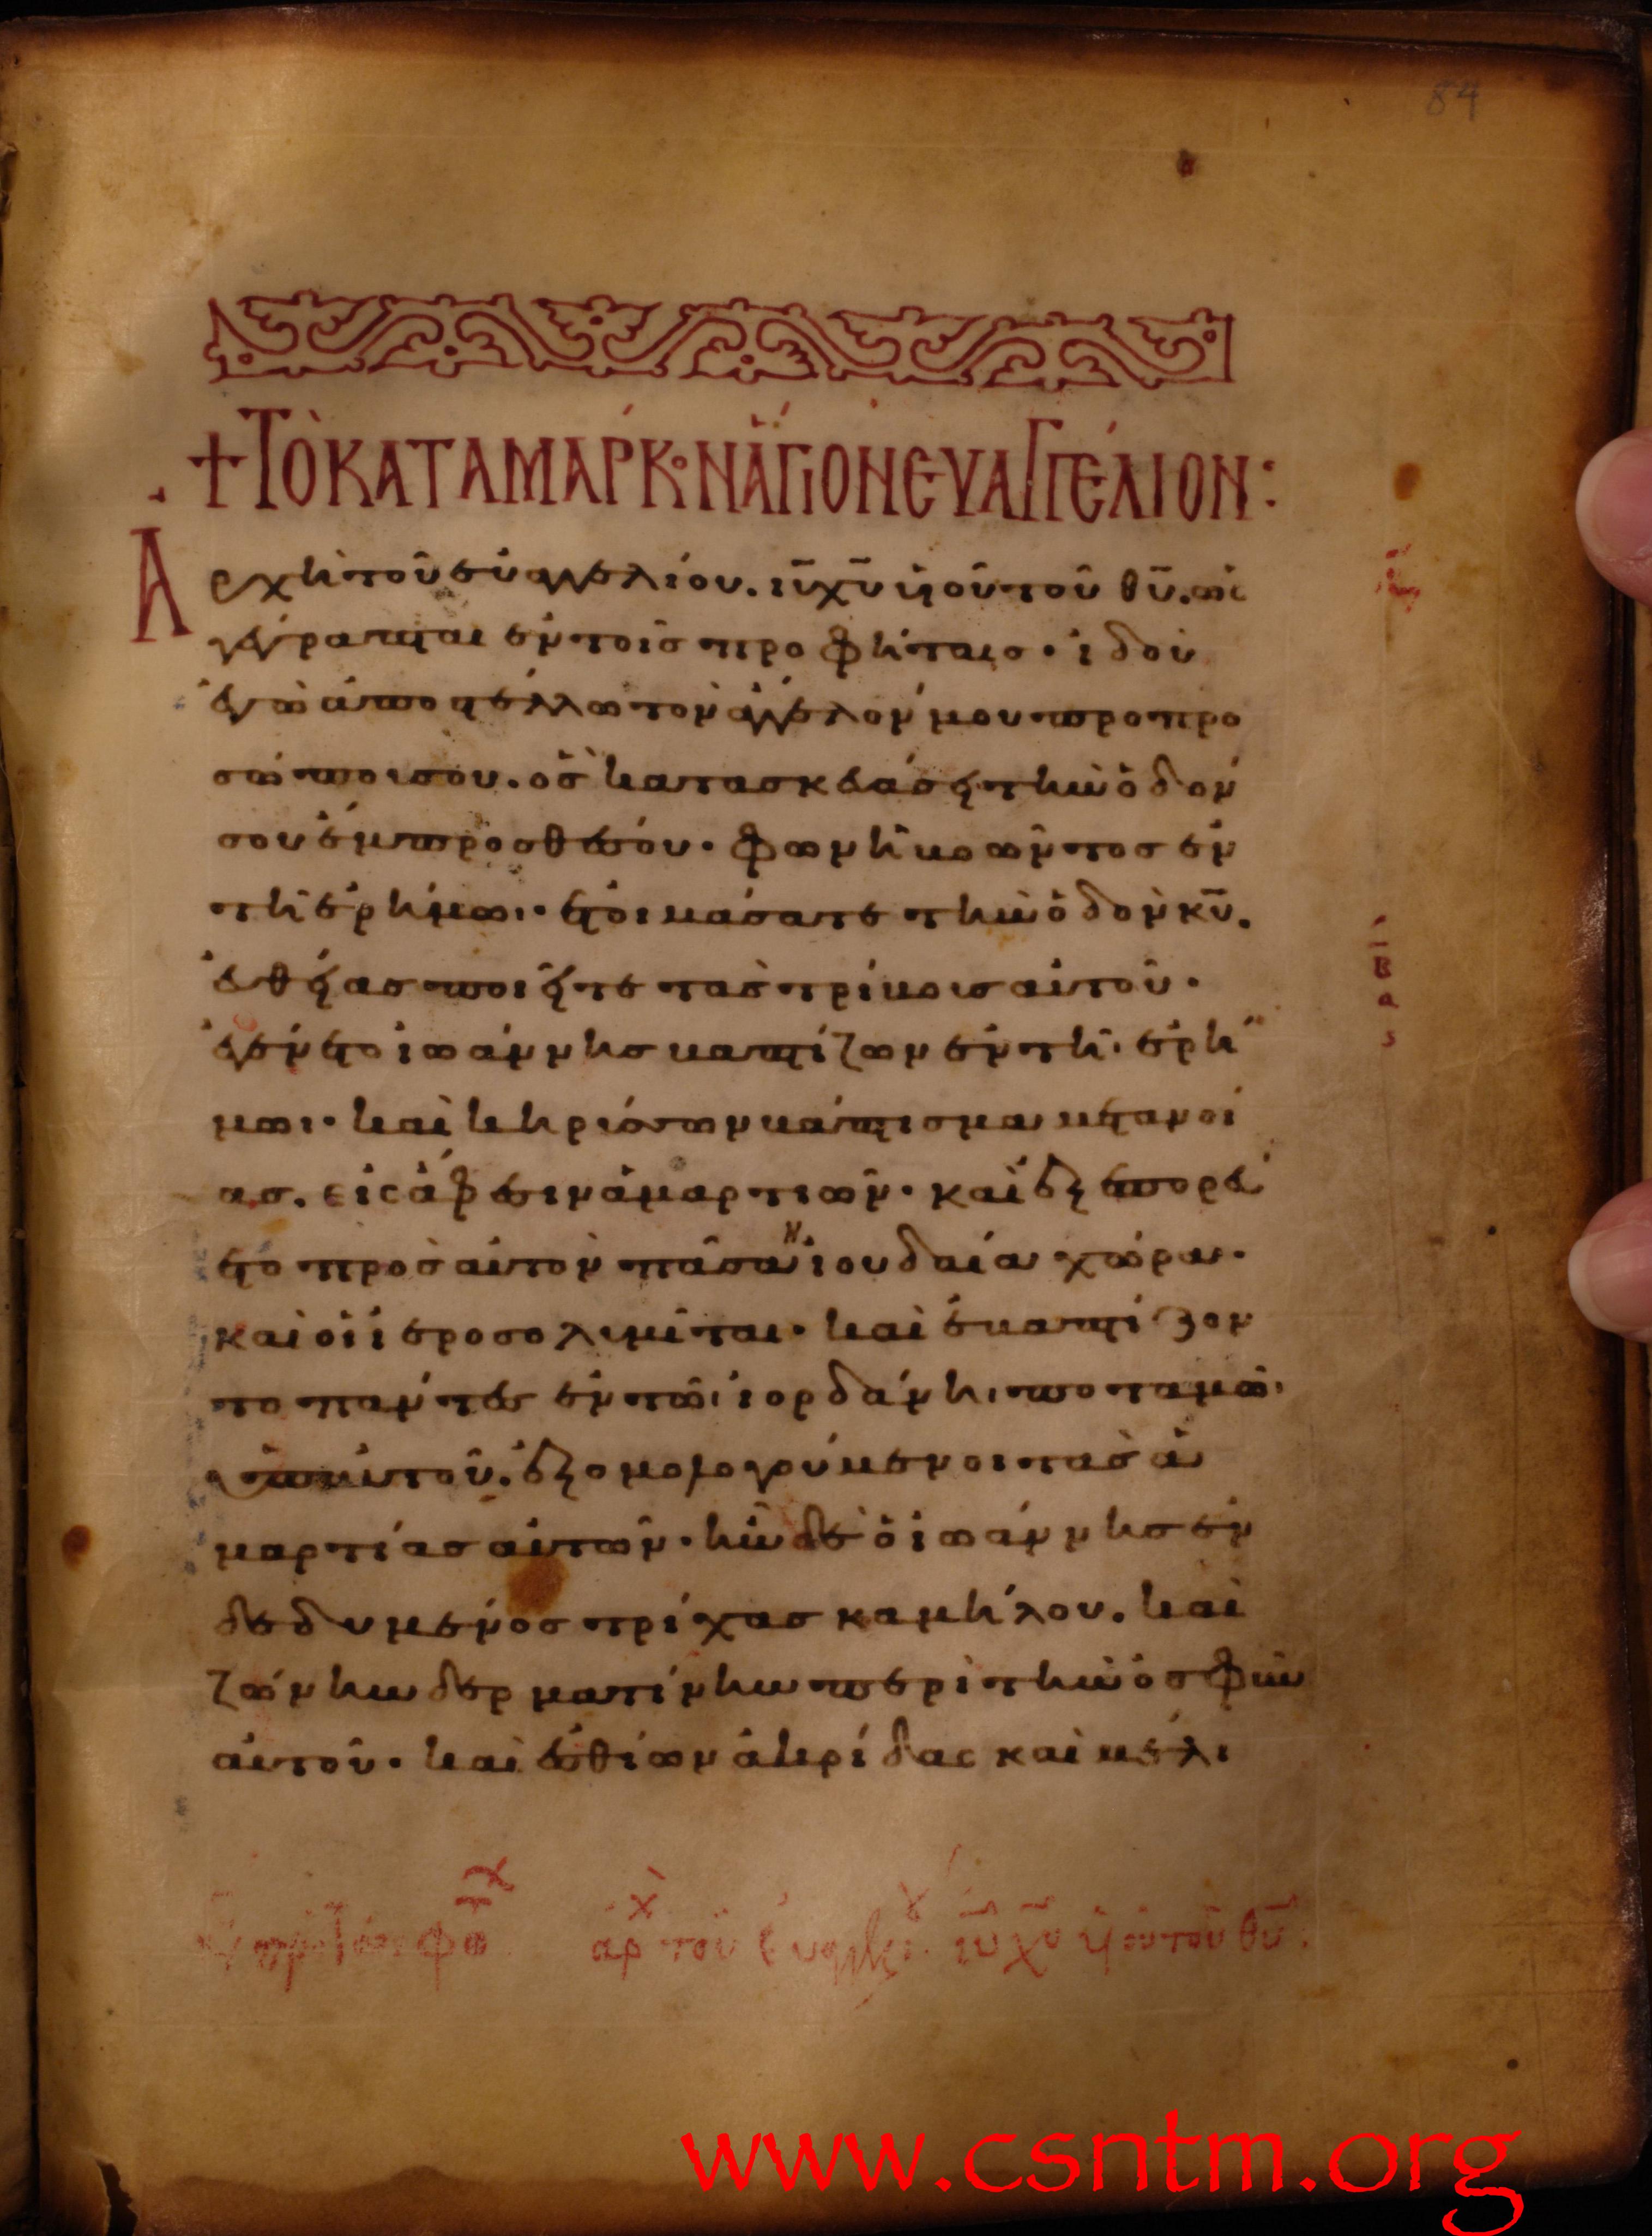 84
+ ΤὸΚΑΤΑΜΆΡΚΟΝἍΓΙΟΝΕΥΑΓΓΈΛΙΟΝ:
Ἀρχὴ τοῦ εὐαγγελίου. ιῡ χῡ ὑιοῦ τοῦ θῡ. ὡς
γέγραπται ἐν τοῖς προφήταις · ἰδοὺ
ἐγὼ ἀποστέλλω τὸν ἄγγελόν μου προ προ
σώποι σου. ὃς κατασκευάσει τὴν ὁδόν
σου ἔμπροσθέν σου · φωνὴ βοῶντος ἐν
τῆ ἐρήμωι · ἑτοιμάσατε τὴν ὁδὸν κῡ.
εὐθείας ποιεῖτε τὰς τρίβοις αὐτοῦ ·
ἐγένετο ἰωάννης βαπτίζων ἐν τῆι ἐρή
μωι · καὶ κηρύσσων βάπτισμα μετανοί
ας. εἰς ἄφεσιν ἁμαρτιῶν · καὶ ἐξεπορεύ
ετο πρὸς αὐτὸν πᾶσα ἡ ἰουδαία χώρα ·
καὶ οἱ ἱεροσολυμῖται · καὶ ἐβαπτίζον
το πάντες ἐν τῶι ἰορδάνηι ποταμῶι
ὑπ αὐτοῦ. ἐξομολογούμενοι τὰς ἁ
μαρτίας αὐτῶν · ἦν δὲ ὁ ἰωάννης ἐν
δεδυμένος τρίχας καμήλου. καὶ
ζώνην δερματίνην περὶ τὴν ὀσφὺν
αὐτοῦ · καὶ ἐσθίων ἀκρίδας καὶ μέλι
ἀρχ τοῦ εὐαγγελι. ιῡ χῡ ὑιοῦ τοῦ θῡ.
www.csntm.org